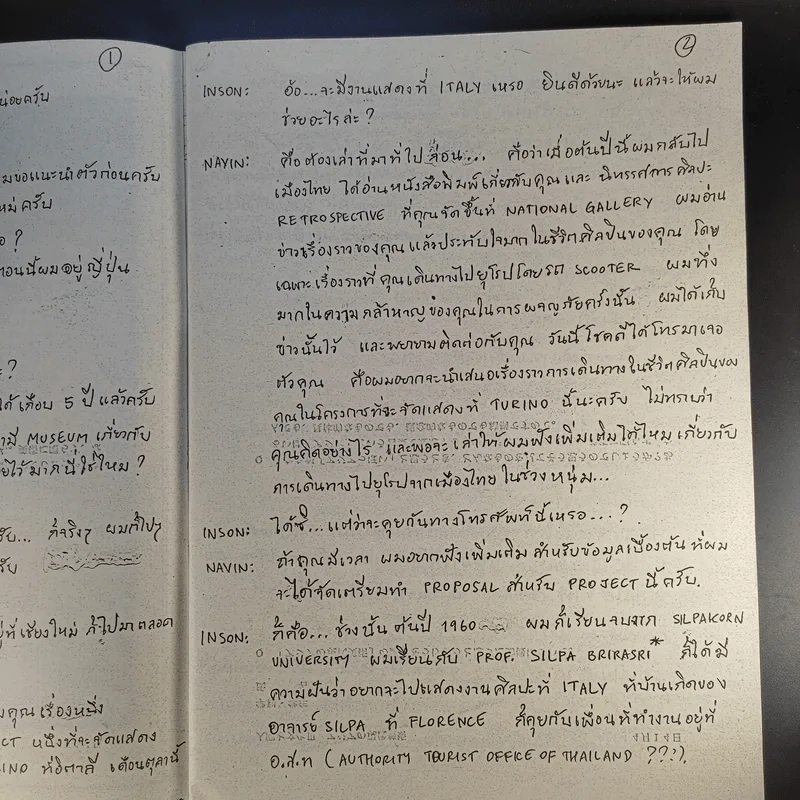 ①
น่อยครับ
มขอแนะนำตัวก่อนครับ
หม่ครับ
อ ?
ตอนนี้ผมอยู่ญี่ปุ่น
ะ ?
ได้เกือบ 5 ปีแล้วครับ
ามี MUSEUM เกี่ยวกับ
ใช่ไหม ?
รับ... ก็จริงๆ ผมก็ไปๆ
รับ
ยู่ที่เชียงใหม่ ก็ไปมาตลอด
มคุณเรื่องหนึ่ง
CT หนึ่งที่จะจัดแสดง
INO ที่อิตาลี เดือนตุลานี้
②
INSON: อ้อ...จะมีงานแสดงที่ ITALY เหรอ ยินดีด้วยนะ แล้วจะให้ผม
ช่วยอะไรล่ะ ?
NAVIN: คือต้องเล่าที่มาที่ไปก่อน... คือว่าเมื่อต้นปีนี้ผมกลับไป
เมืองไทย ได้อ่านหนังสือพิมพ์เกี่ยวกับคุณและ นิทรรศการศิลปะ
RETROSPECTIVE ที่คุณจัดขึ้นที่ NATIONAL GALLERY ผมอ่าน
ข่าวเรื่องราวของคุณ แล้วประทับใจมากในชีวิตศิลปินของคุณ โดย
เฉพาะเรื่องราวที่คุณเดินทางไปยุโรปโดยรถ SCOOTER ผมทึ่ง
มากในความกล้าหาญของคุณในการผจญภัยครั้งนั้น ผมได้เก็บ
ข่าวนั้นไว้ และพยายามติดต่อกับคุณ วันนี้โชคดีได้โทรมาเจอ
ตัวคุณ คือผมอยากจะนำเสนอเรื่องราวการเดินทางในชีวิตศิลปินของ
คุณในโครงการที่จะจัดแสดงที่ TURINO นี้นะครับ ไม่ทราบว่า
คุณคิดอย่างไร และพอจะเล่าให้ผมฟังเพิ่มเติมได้ไหม เกี่ยวกับ
การเดินทางไปยุโรปจากเมืองไทยในช่วงหนุ่ม...
INSON: ได้ซี่...แต่ว่าจะคุยกันทางโทรศัพท์นี้เหรอ...?
NAVIN: ถ้าคุณมีเวลา ผมอยากฟังเพิ่มเติม สำหรับข้อมูลเบื้องต้น ที่ผม
จะได้จัดเตรียมทำ PROPOSAL สำหรับ PROJECT นี้ครับ.
INSON: ก็คือ... ช่วงนั้น ต้นปี 1960 ผมก็เรียนจบจาก SILPAKORN
UNIVERSITY ผมเรียนกับ PROF. SILPA BRIRASRI* ก็ได้มี
ความฝันว่าอยากจะไปแสดงงานศิลปะที่ ITALY ที่บ้านเกิดของ
อาจารย์ SILPA ที่ FLORENCE ก็คุยกับเพื่อนที่ทำงานอยู่ที่
อ.ส.ท (AUTHORITY TOURIST OFFICE OF THAILAND ???).